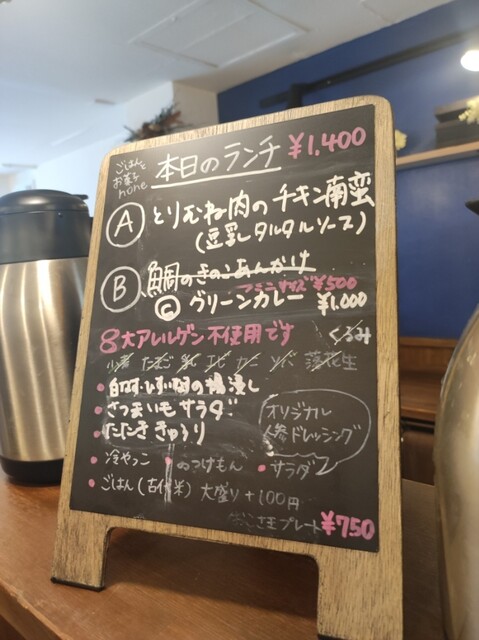 ごはんと
お菓子
hone
本日のランチ ¥1,400
A とりむね肉のチキン南蛮
(豆乳タルタルソース)
B 鯛のきのこあんかけ
¥500
C グリーンカレー ¥1,000
8大アレルゲン不使用です くるみ
小麦 たまご 乳 エビ カニ ソバ 落花生
の揚浸し
・さつまいもサラダ
・たたききゅうり
オリジナル
人参ドレッシング
・冷やっこ ・のつけもん ・サラダ
・ごはん(古代米) 大盛り+100円
プレート¥750